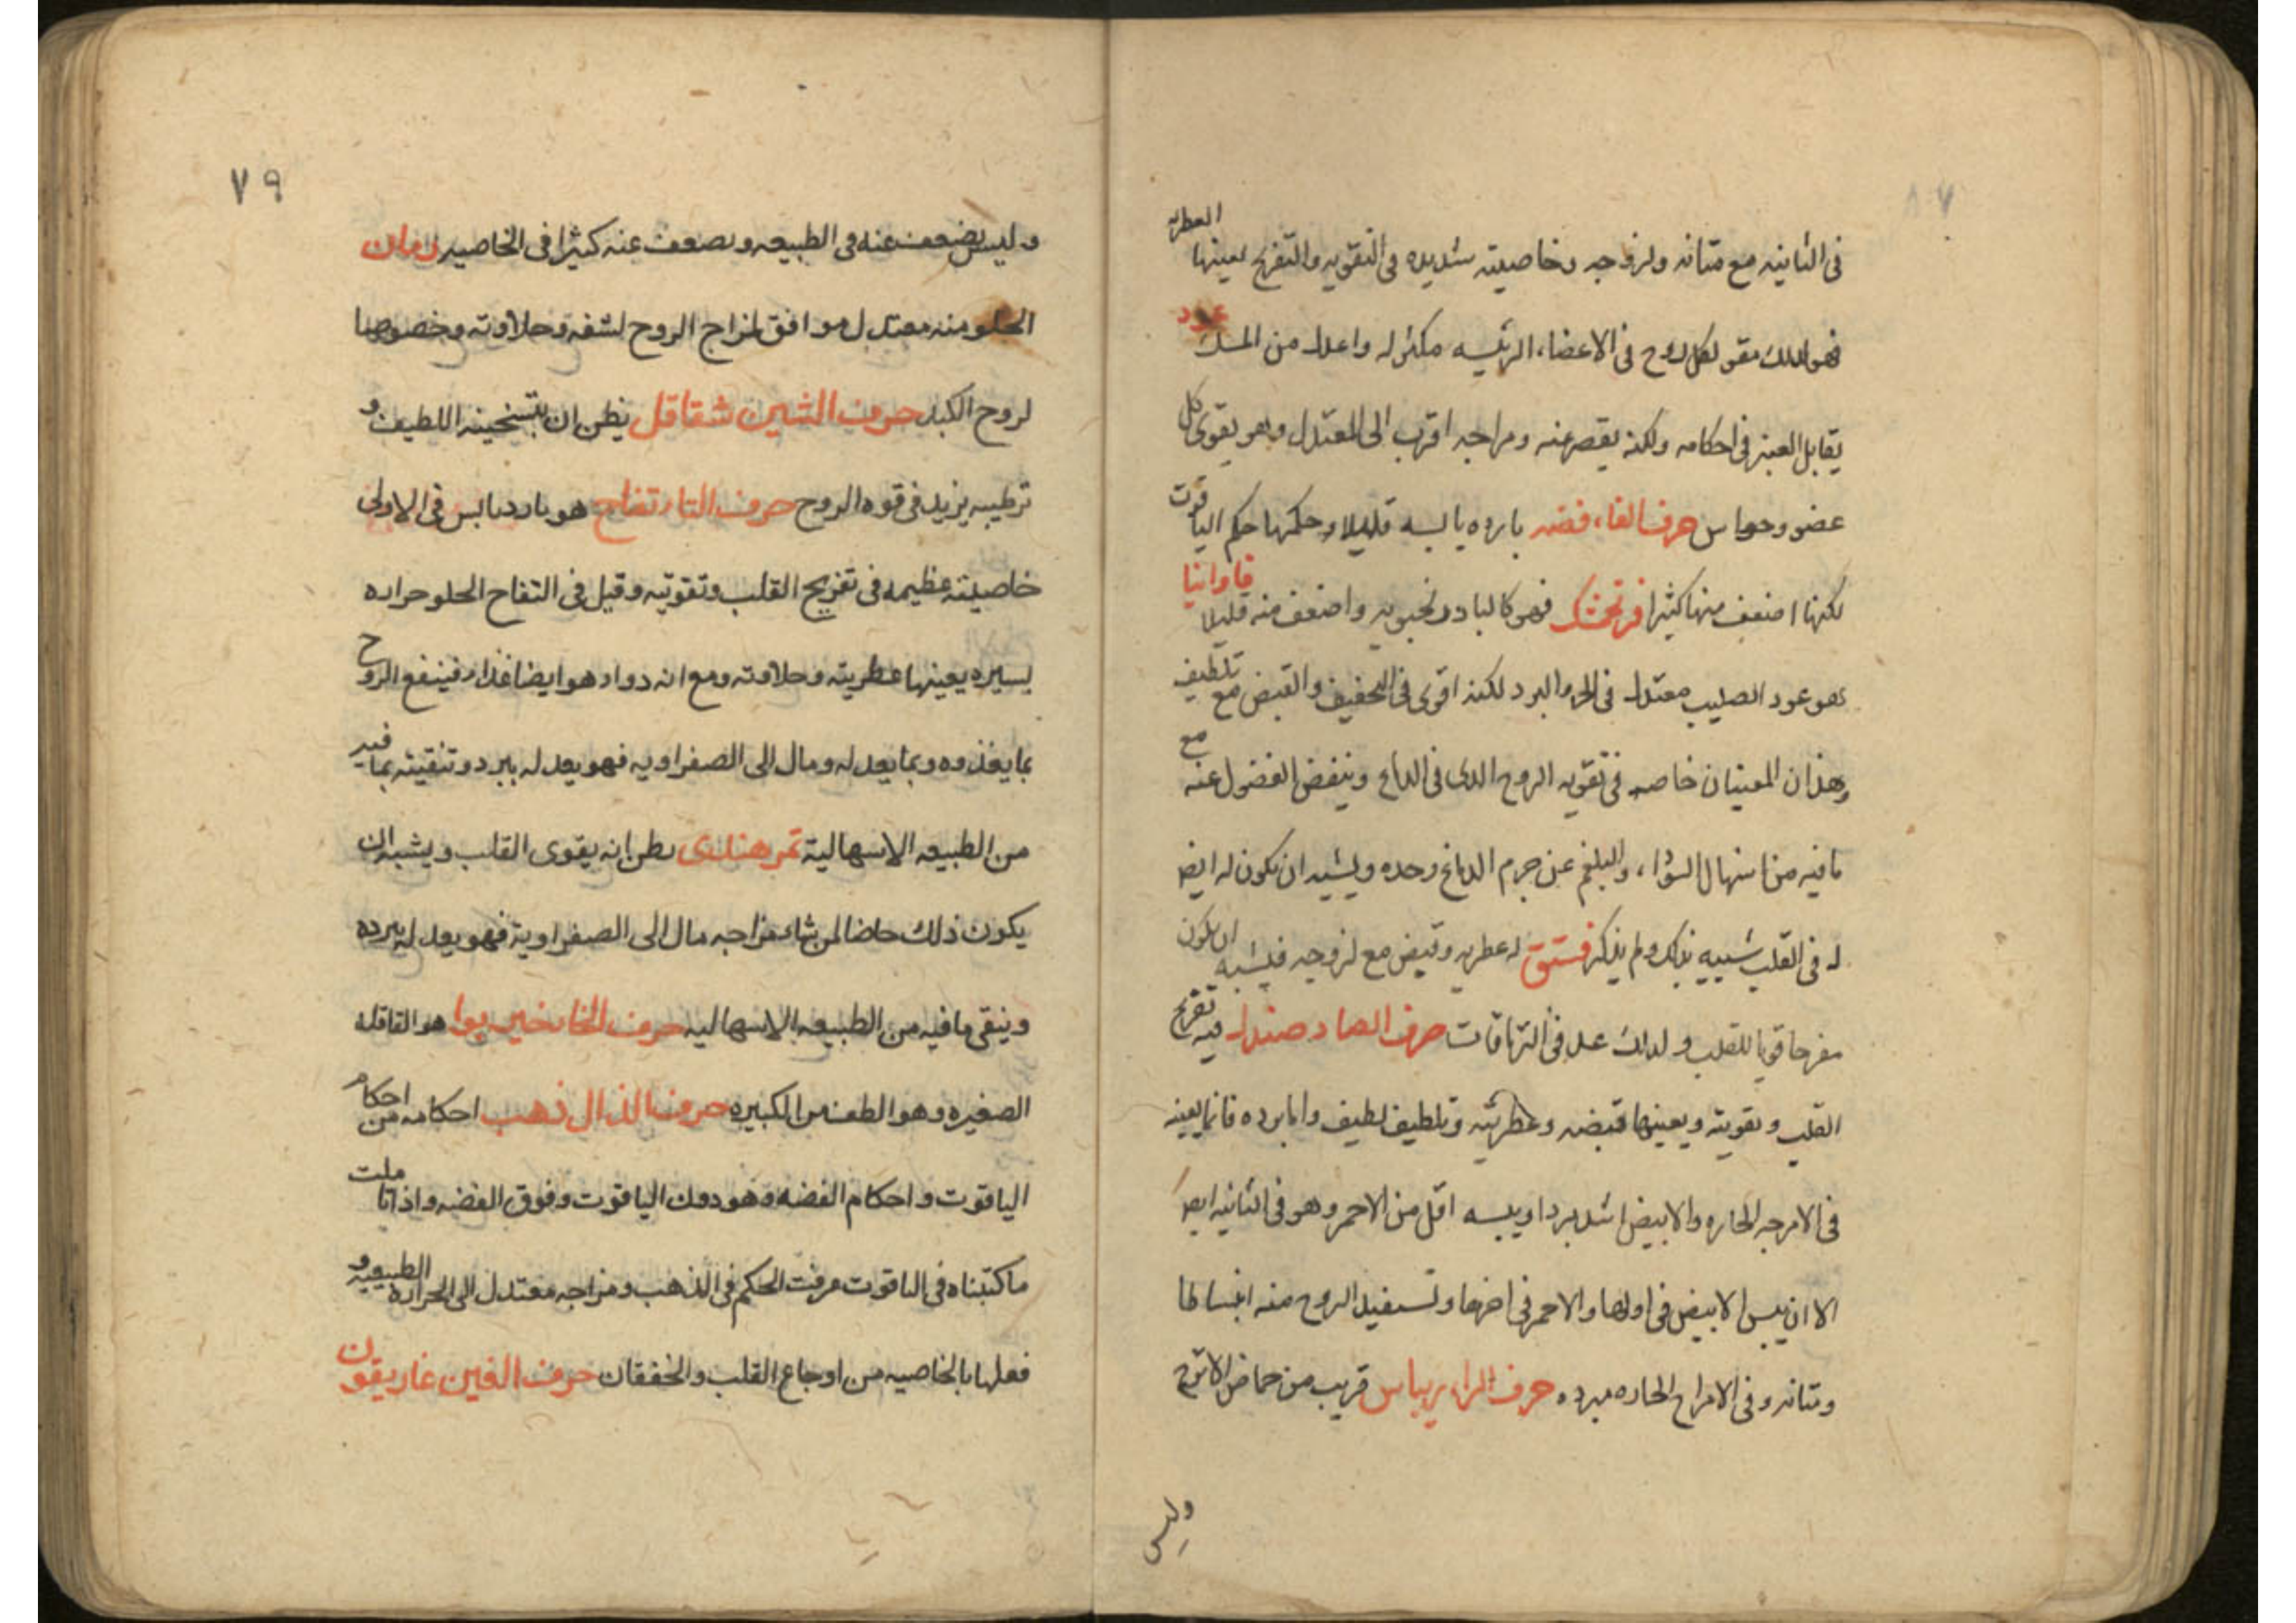 العطريه
في الثانيه مع متانه ولزوجه وخاصيته شديده في التقويه والتفريح يعينها
عود
فهو لذلك مقو لكل روح في الاعضاء الرئيسه مكثر له واعدل من المسك
يقابل العنبر في احكامه ولكنه يقصر عنه ومزاجه اقرب الى المعتدل وهو يقوى كل
عضو وحواس حرف الفاء فضه بارده يابسه قليلا وحكمها حكم الياقوت
لكنها اضعف منها كثيرا فرنجمشك فهو كالبادرنجبويه واضعف منه قليلا فاوانيا
هو عود الصليب معتدل في الحر والبرد لكنه اقوى في التجفيف والقبض مع تلطيف
وهذان المعنيان خاصه في تقويه الروح الذى في الدماغ وينفض الفضول عنه مع
ما فيه من اسهال السوداء والبلغم عن جرم الدماغ وحده ويشبه ان يكون له ايضا
له في القلب شبيه بذلك ولم يذكر فستق له عطريه وقبض مع لزوجه فيشبه ان يكون
مفرحا قويا للقلب ولذلك عد في الترياقات حرف الصاد صندل فيه تفريح
القلب وتقويته ويعينها قبضه وعطريته وتلطيف لطيف واما برده فانما يعينه
في الامزجه الحاره والابيض اشد بردا ويبسه اقل من الاحمر وهو في الثانيه ايضا
الا ان يبس الابيض في اولها والاحمر في اخرها وتستفيد الروح منه انبساطا
ومتانه وفي الامزاج الحاره مبرده حرف الراء ريباس قريب من حماض الاترج
وليس
٧٩
وليس يضعف عنه في الطبيعه ويضعف عنه كثيرا في الخاصيه رمان
الحلو منه معتدل موافق لمزاج الروح لشفه وحلاوته وخصوصا
لروح الكبد حرف الشين شقاقل يظن ان بتسخينه اللطيف و
ترطيبه يزيد في قوه الروح حرف التاء تفاح هو بارد يابس في الاولى
خاصيته عظيمه في تفريح القلب وتقويته وقيل في التفاح الحلو حراره
يسيره يعينها عطريته وحلاوته ومع انه دواء هو ايضا غذاء فينفع الروح
بما يغذوه وبما يعدله ومال الى الصفراويه فهو يعدله ببرد وتنقيته بما فيه
من الطبيعه الاسهالية تمر هندى يظن انه يقوى القلب ويشبه ان
يكون ذلك خاصا لمن شاء مزاجه مال الى الصفراوية فهو يعدله ببرده
وينقى ما فيه من الطبيعه الاسهاليه حرف الخاء خير بوا هو القاقله
الصغيره وهو الطف من الكبيره حرف الذال ذهب احكامه من احكام
الياقوت واحكام الفضه وهو دون الياقوت وفوق الفضه واذا تاملت
ما كتبناه في الياقوت عرفت الحكم في الذهب ومزاجه معتدل الى الحراره الطبيعيه و
فعلها بالخاصيه من اوجاع القلب والخفقان حرف الغين غاريقون